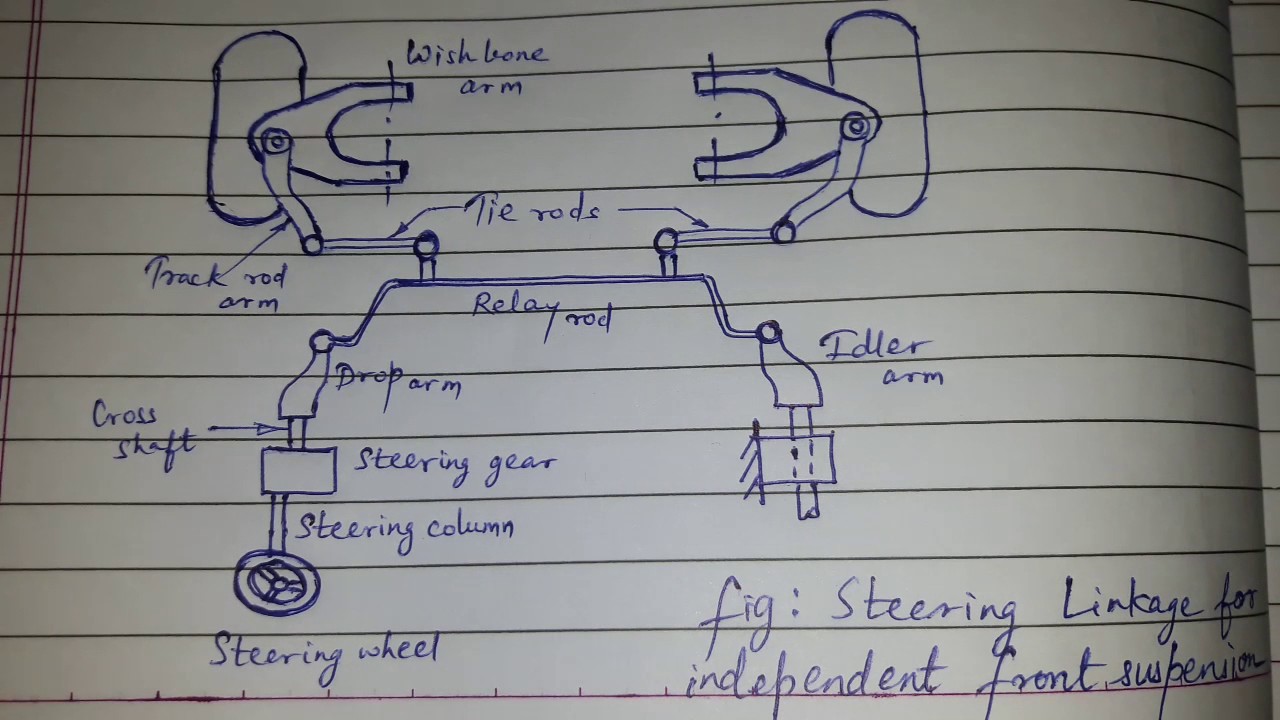 Wishbone
arm
Tie rods
Track rod
arm
Relay rod
Drop arm
Idler
arm
Cross
shaft
Steering gear
Steering column
Steering wheel
fig: Steering Linkage for
independent front suspension